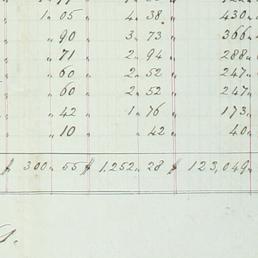 1 " 05 " 4 " 38 " 430 "
" 90 " 3 " 73 " 366 "
" 71 " 2 " 94 " 288 "
" 60 " 2 " 52 " 247 "
" 60 " 2 " 52 " 247 "
" 42 " 1 " 76 " 173 "
" 10 " " 42 " 40 "
$ 300 " 55 $ 1,252 " 28 $ 123,049 "